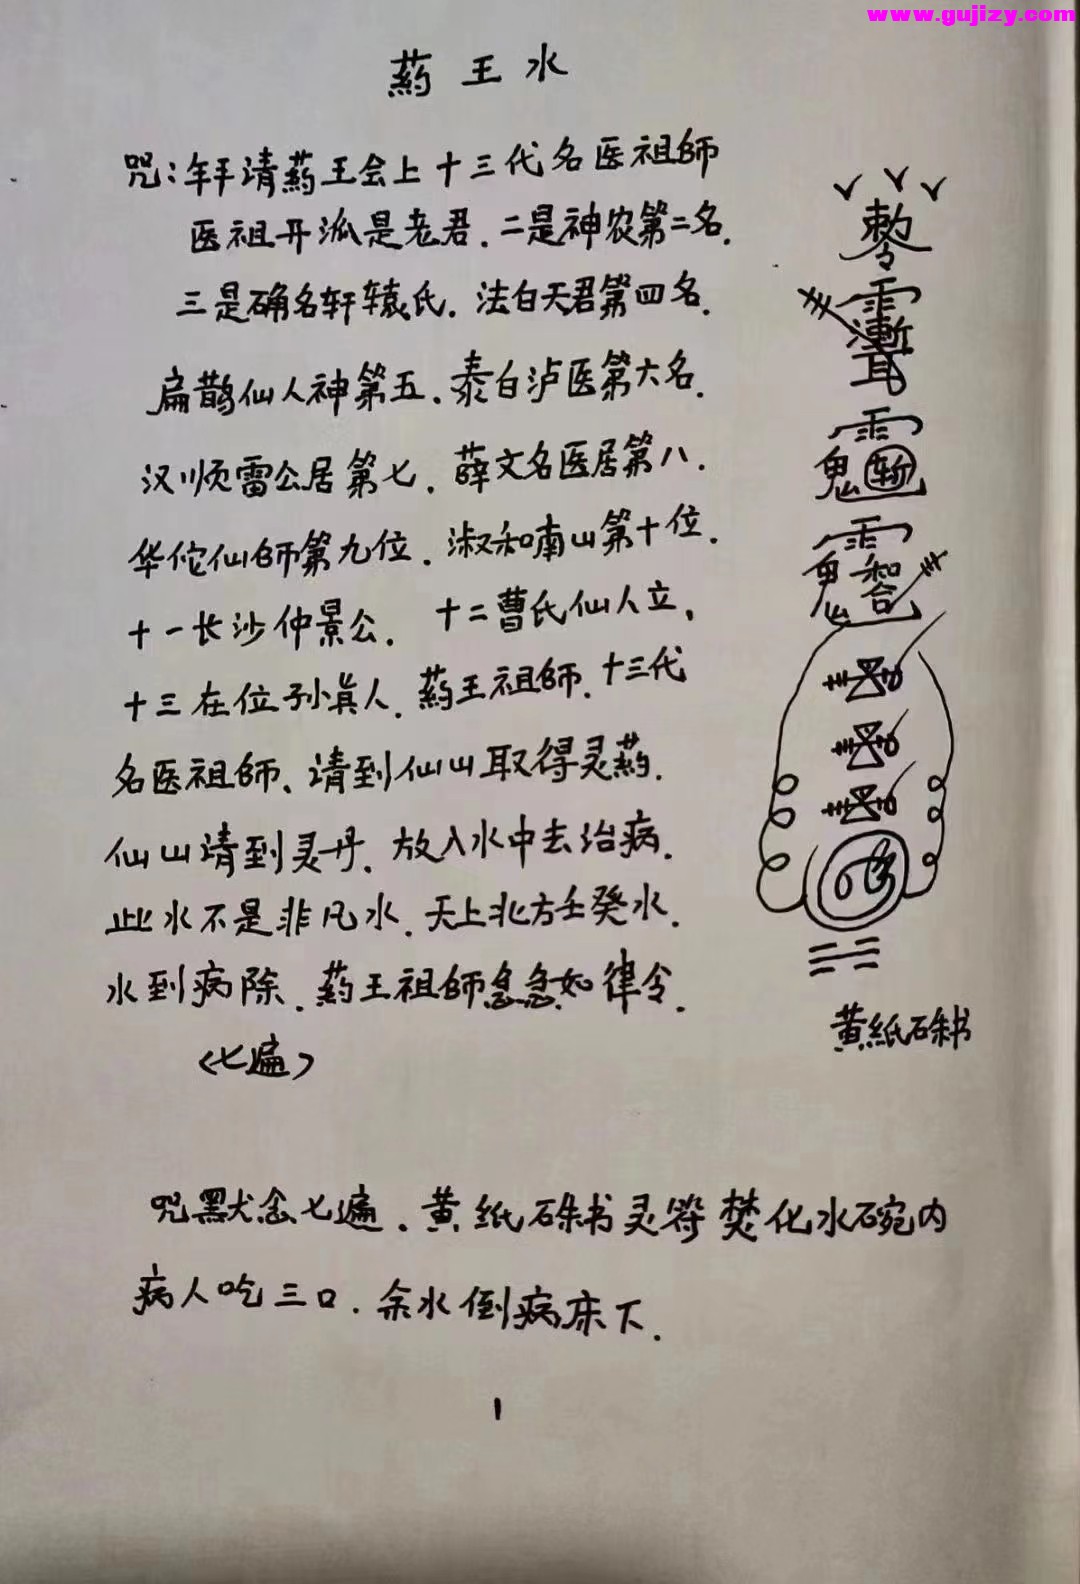 www.gujizy.com
薬王水
咒:拜请薬王会上十三代名医祖师
医祖开派是老君.二是神农第二名.
三是确名轩辕氏.法白天君第四名.
扁鹊仙人神第五.泰白泸医第六名.
汉顺雷公居第七.薛文名医居第八.
华佗仙师第九位.淑和南山第十位.
十一长沙仲景公.十二曹氏仙人立,
十三在位孙真人.薬王祖师.十三代
名医祖师、请到仙山取得灵薬.
仙山请到灵丹.放入水中去治病.
此水不是非凡水.天上北方壬癸水.
水到病除.薬王祖师急急如律令.
<七遍>
敕令
黄纸硃书
咒默念七遍.黄纸硃书灵符焚化水碗内
病人吃三口.余水倒病床下.
1